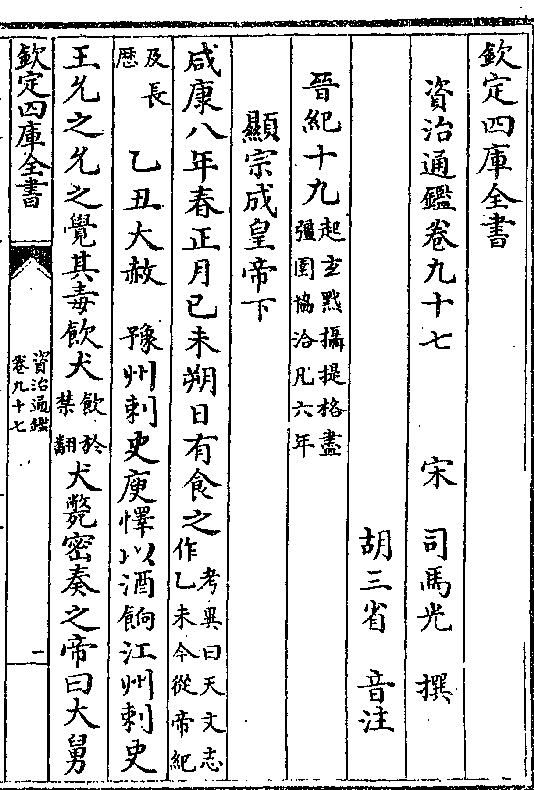 欽定四庫全書
資治通鑑卷九十七 宋 司馬光 撰
胡三省 音注
晉紀十九起玄黓攝提格盡彊圉協洽凡六年
顯宗成皇帝下
咸康八年春正月己未朔日有食之考異曰天文志作乙未今從帝紀
及長厯 乙丑大赦 豫州刺史庾懌以酒餉江州刺史
王允之允之覺其毒飲犬飲於禁翻犬斃密奏之帝曰大舅
欽定四庫全書 資治通鑑卷九十七 一